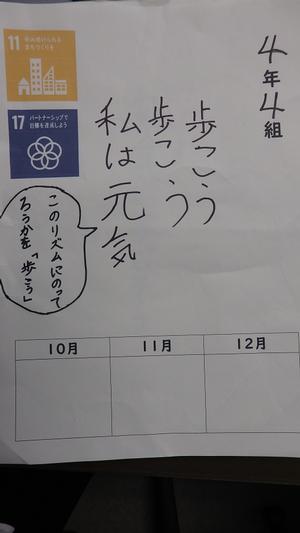 11 住み続けられる
まちづくりを
17 パートナーシップで
目標を達成しよう
4年4組
歩こう
歩こう
私は元気
このリズムにのって
ろうかを「歩こう」
10月 11月 12月